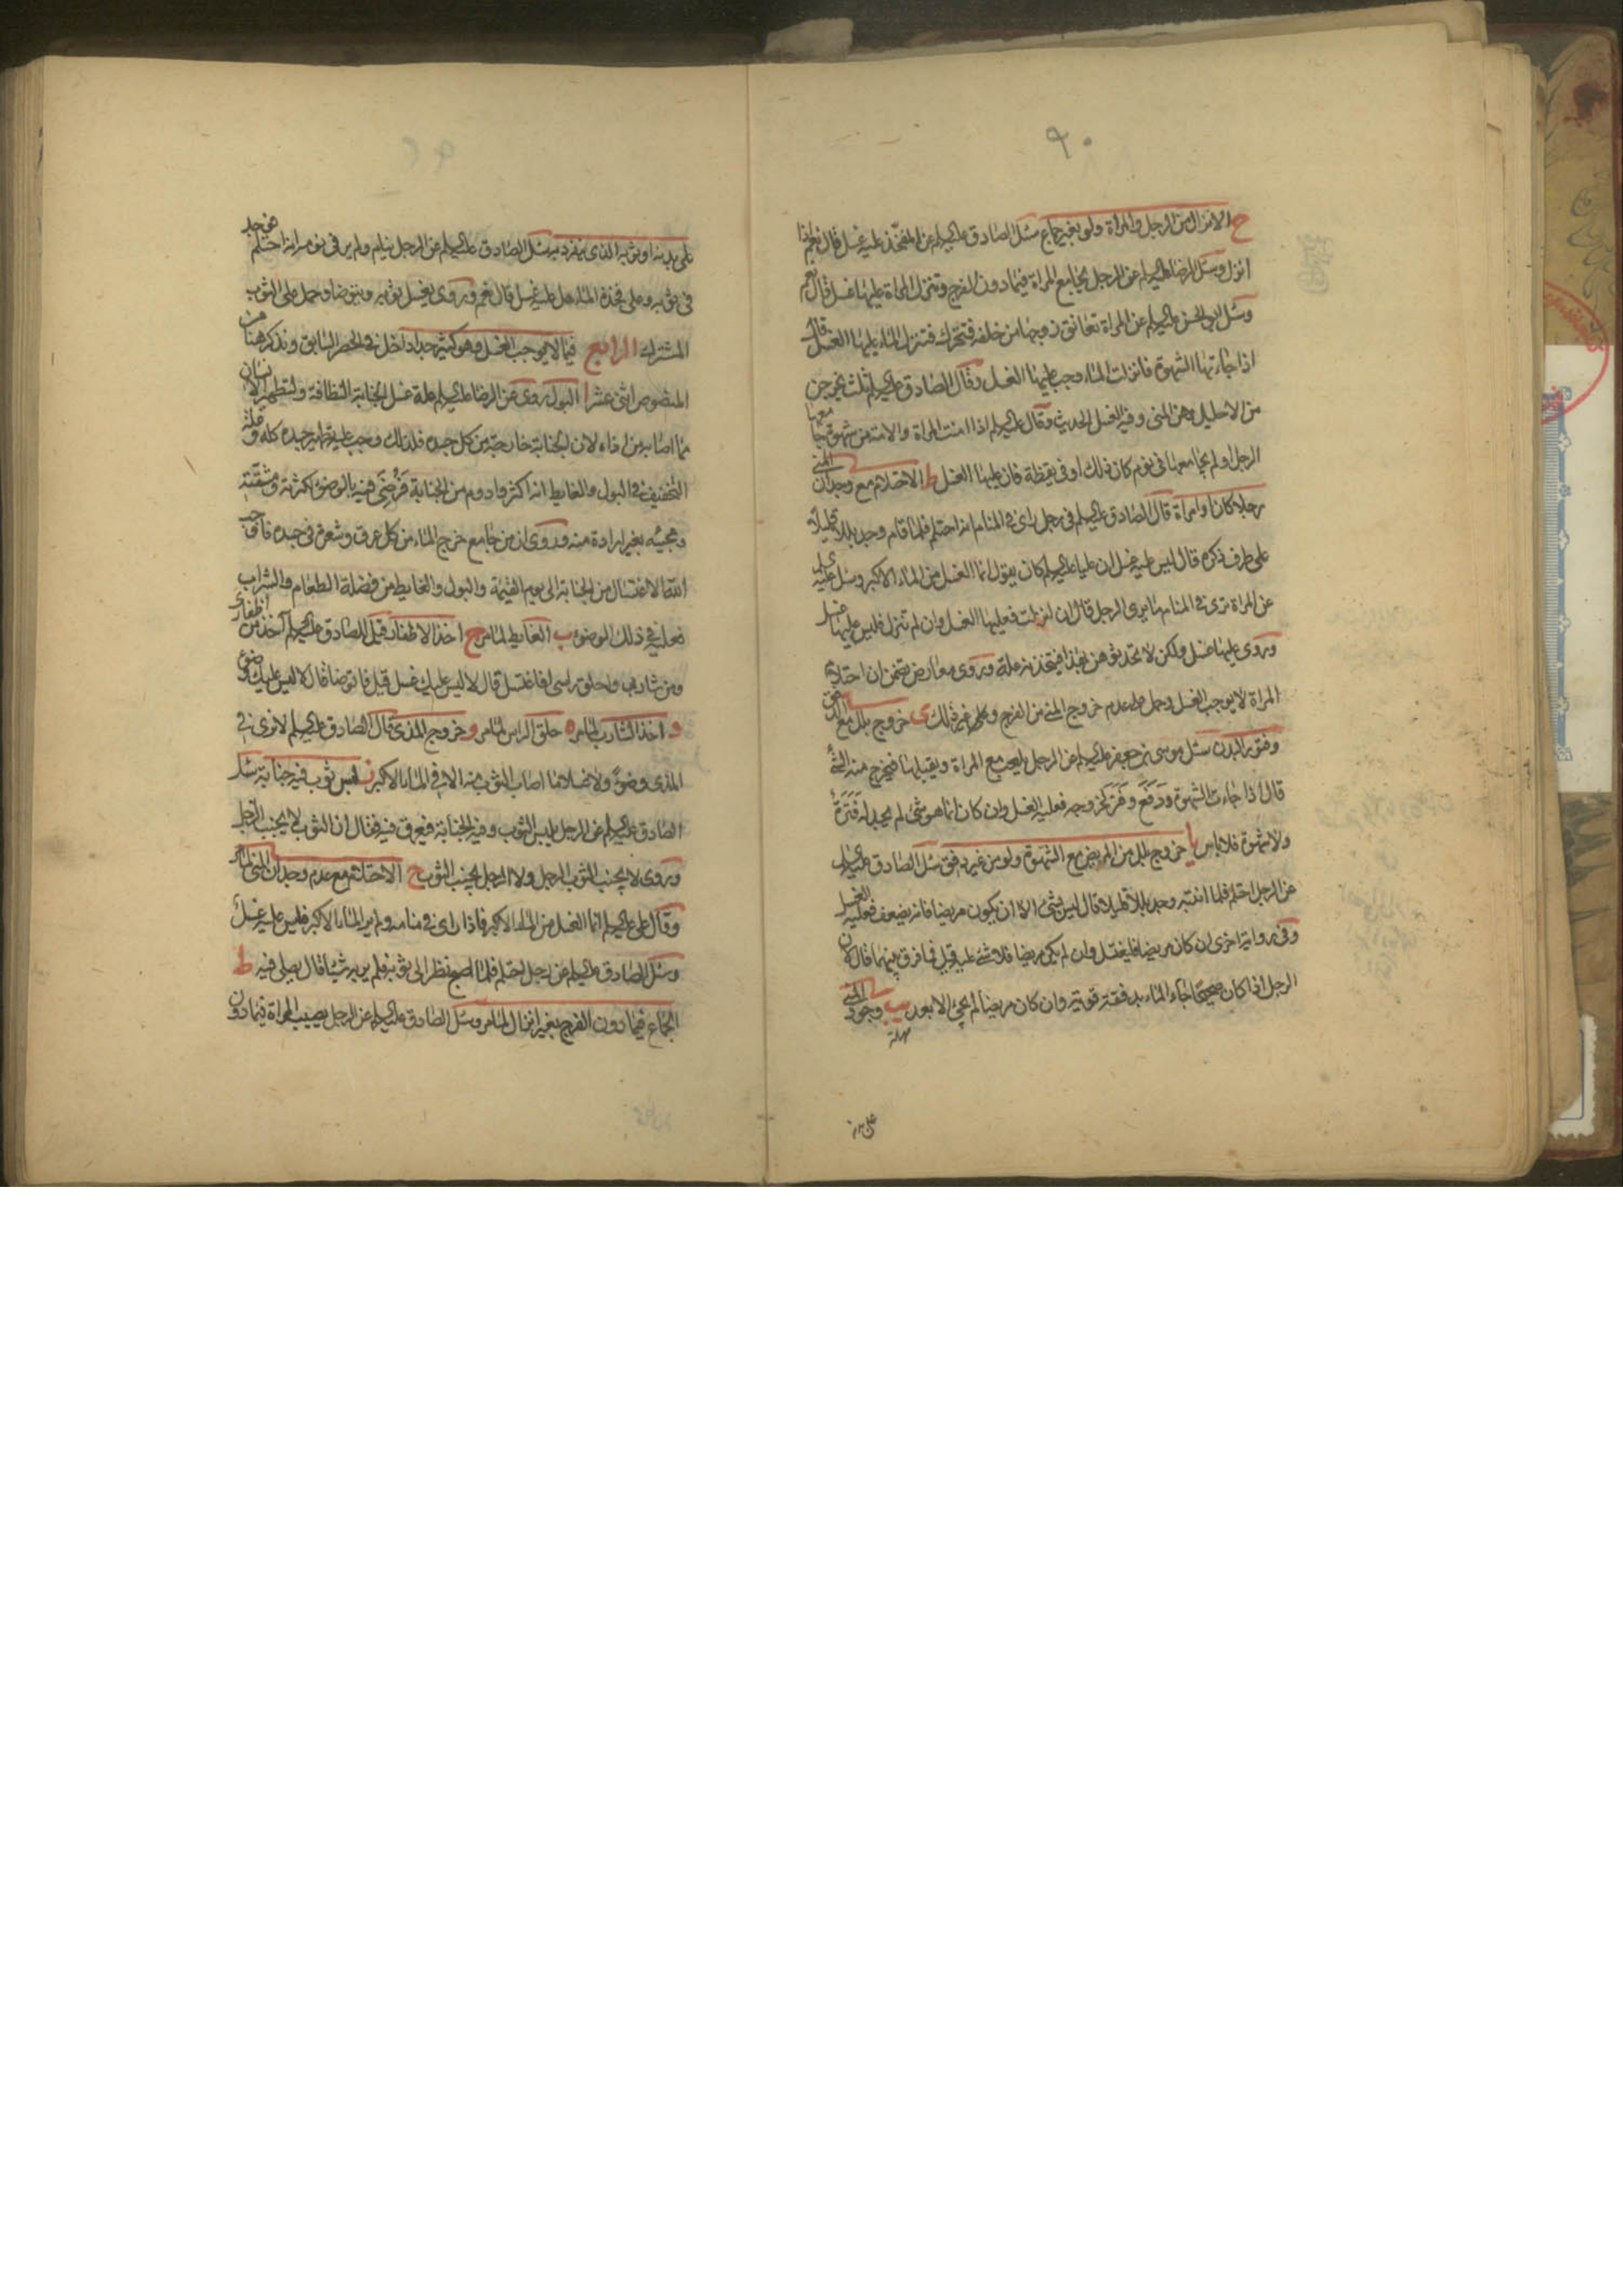 ٩٠
ح الانزال من الرجل والمراة ولو بغير جماع سئل الصادق عليه السلم عن المفخذ عليه غسل قال نعم اذا
انزل وسئل الرضا عليه السلم عن الرجل يجامع المراة فيما دون الفرج وتنزل المراة عليها غسل قال نعم
وسئل ابو الحسن عليه السلم عن المراة تعانق زوجها من خلفه فتحرك فتنزل الماء عليها الغسل قال
اذا جاءتها الشهوة فانزلت الماء وجب عليها الغسل وقال الصادق عليه السلم ثلث يخرجن
من الاحليل وهن المنى وفيه الغسل الحديث وقال عليه السلم اذا امنت المراة والامة من شهوة جامعها
الرجل او لم يجامعها فى نوم كان ذلك او فى يقظة فان عليها الغسل ط الاحتلام مع وجدان المنى
رجلا كان او امراة قال الصادق عليه السلم فى رجل راى فى المنام انه احتلم فلما قام وجد بللا قليلا
على طرف ذكره قال ليس عليه غسل ان عليا عليه السلم كان يقول انما الغسل من الماء الاكبر وسئل عليه السلم
عن المراة ترى فى المنام ما يرى الرجل قال ان انزلت فعليها الغسل وان لم تنزل فليس عليها غسل
وروى عليها غسل ولكن لا تحدثوهن بهذا فيتخذنه علة وروى معارض يتضمن ان احتلام
المراة لا يوجب الغسل وحمل على عدم خروج المنى من الفرج وعلى غير ذلك ى خروج بلل مع الدفق
وفتور البدن سئل موسى بن جعفر عليه السلم عن الرجل يلعب مع المراة ويقبلها فيخرج منه الشئ
قال اذا جاءت الشهوة ودفع وفتر لخروجه فعليه الغسل وان كان انما هو شئ لم يجد له فترة
ولا شهوة فلا باس يا خروج بلل من المريض مع الشهوة ولو من غير دفق سئل الصادق عليه السلم
عن الرجل احتلم فلما انتبه وجد بللا قليلا قال ليس بشئ الا ان يكون مريضا فانه يضعف فعليه الغسل
وفى رواية اخرى ان كان مريضا فليغتسل وان لم يكن مريضا فلا شئ عليه قيل فما فرق بينهما قال لان
الرجل اذا كان صحيحا جاء الماء بدفقة قوية وان كان مريضا لم يجئ الا بعد يب وجود المنى
على بدنه
على بدنه او ثوبه الذى ينفرد به سئل الصادق عليه السلم عن الرجل ينام ولم ير فى نومه انه احتلم فيجد
فى ثوبه وعلى فخذه الماء هل عليه غسل قال نعم وروى يغسل ثوبه ويتوضا وحمل على الثوب
المشترك الرابع فيما لا يوجب الغسل وهو كثير جدا داخل فى الحصر السابق ونذكر هنا من
المنصوص اثنى عشر ا البول روى عن الرضا عليه السلم علة غسل الجنابة النظافة ولتطهير الانسان
مما اصابه من اذاه لان الجنابة خارجة من كل جسده فلذلك وجب عليه تطهير جسده كله وعلة
التخفيف فى البول والغايط انه اكثر وادوم من الجنابة فرضى فيه بالوضوء لكثرته ومشقته
ومجيئه بغير ارادة منه وروى ان من جامع خرج الماء من كل عرق وشعرة فى جسده فاوجب
الله الاغتسال من الجنابة الى يوم القيمة والبول والغايط من فضلة الطعام والشراب
فعليه فى ذلك الوضوء ب الغايط لما مر ج اخذ الاظفار قيل للصادق عليه السلم آخذ من اظفارى
ومن شاربى واحلق راسى افاغتسل قال لا ليس عليك غسل قيل فاتوضا قال لا ليس عليك وضوء
د اخذ الشارب لما مر ه حلق الراس لما مر و خروج المذى قال الصادق عليه السلم لا نرى فى
المذى وضوءً ولا غسلا ما اصاب الثوب منه الا فى الماء الاكبر ز لبس ثوب فيه جنابة سئل
الصادق عليه السلم عن الرجل يلبس الثوب وفيه الجنابة فيعرق فيه فقال ان الثوب لا يجنب الرجل
وروى لا يجنب الثوب الرجل ولا الرجل يجنب الثوب ح الاحتلام مع عدم وجدان المنى لما مر
وقال على عليه السلم انما الغسل من الماء الاكبر فاذا راى فى منامه ولم ير الماء الاكبر فليس عليه غسل
وسئل الصادق عليه السلم عن رجل احتلم فلما اصبح نظر الى ثوبه فلم ير به شيئا قال يصلى فيه ط
الجماع فيما دون الفرج بغير انزال لما مر وسئل الصادق عليه السلم عن الرجل يصيب المراة فيما دون